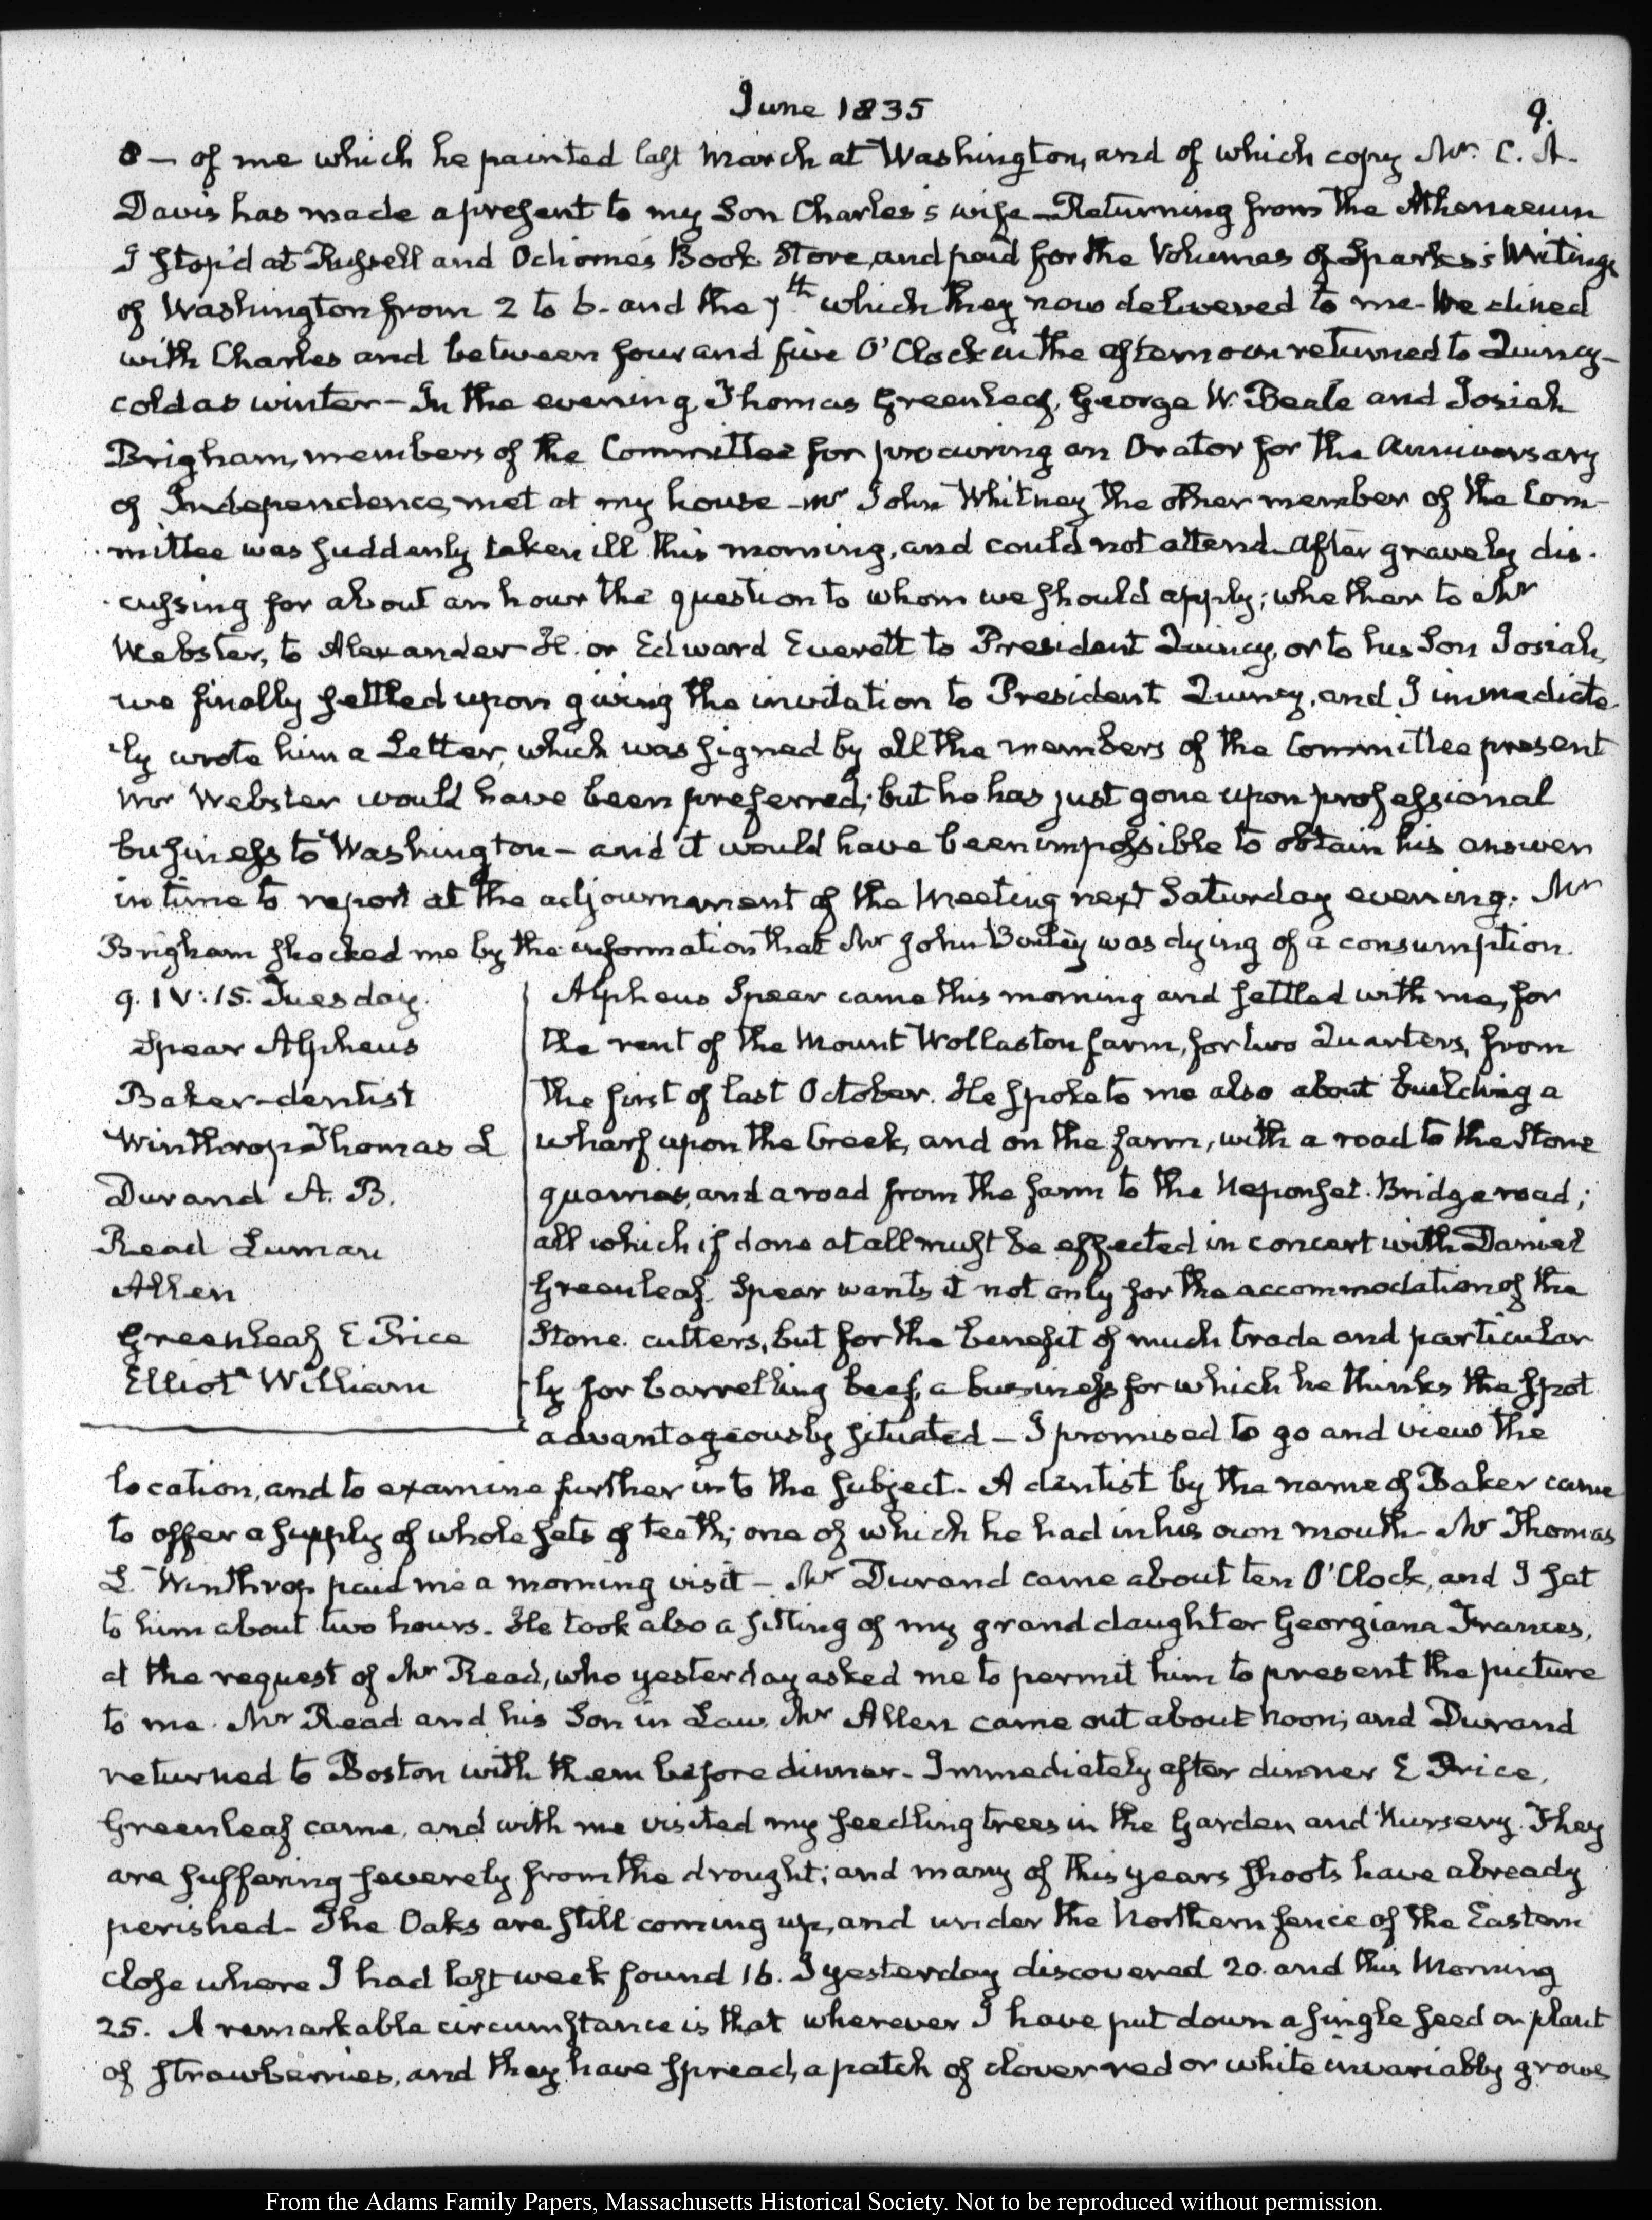 June 1835
9.
8 — of me which he painted last March at Washington, and of which copy Mr. C. A.
Davis has made a present to my Son Charles's wife — Returning from the Athenaeum
I stop'd at Russell and Odiorne's Book Store, and paid for the Volumes of Sparks's Writings
of Washington from 2 to 6 - and the 7th which they now delivered to me - We dined
with Charles and between four and five O'Clock in the afternoon returned to Quincy —
cold as winter — In the evening, Thomas Greenleaf, George W. Beale and Josiah
Brigham, members of the Committee for procuring an Orator for the Anniversary
of Independence, met at my house — Mr John Whitney the other member of the Com-
mittee was suddenly taken ill this morning, and could not attend. After gravely dis-
cussing for about an hour the question to whom we should apply; whether to Mr
Webster, to Alexander H. or Edward Everett to President Quincy, or to his Son Josiah,
we finally settled upon giving the invitation to President Quincy, and I immediate-
ly wrote him a Letter, which was signed by all the members of the Committee present
Mr Webster would have been preferred; but he has just gone upon professional
business to Washington — and it would have been impossible to obtain his answer
in time to report at the adjournment of the Meeting next Saturday evening. Mr
Brigham shocked me by the information that Mr John was dying of a consumption.
9. IV:15. Tuesday.
Spear Alpheus
Baker - dentist
Winthrop Thomas L
Durand A. B.
Read Luman
Allen
Greenleaf E Price
Elliot William
Alpheus Spear came this morning and settled with me, for
the rent of the Mount Wollaston farm, for two Quarters, from
the first of last October. He spoke to me also about building a
wharf upon the Creek, and on the farm, with a road to the Stone
quarries, and a road from the farm to the Neponset Bridge road;
all which if done at all must be effected in concert with Daniel
Greenleaf. Spear wants it not only for the accommodation of the
Stone cutters, but for the benefit of much trade and particular
-ly for barrelling beef, a business for which he thinks the spot
advantageously situated — I promised to go and view the
location, and to examine further into the subject. A dentist by the name of Baker came
to offer a supply of whole sets of teeth; one of which he had in his own mouth - Mr Thomas
L Winthrop paid me a morning visit — Mr Durand came about ten O'Clock, and I sat
to him about two hours. He took also a sitting of my grand daughter Georgiana Frances,
at the request of Mr Read, who yesterday asked me to permit him to present the picture
to me. Mr Read and his Son in Law, Mr Allen came out about noon; and Durand
returned to Boston with them before dinner - Immediately after dinner E Price,
Greenleaf came, and with me visited my seedling trees in the Garden and Nursery. They
are suffering severely from the drought; and many of this years shoots have already
perished - The Oaks are still coming up, and under the Northern fence of the Eastern
close where I had last week found 16. I yesterday discovered 20. and this Morning
25. A remarkable circumstance is that wherever I have put down a single seed or plant
of strawberries, and they have spread, a patch of clover red or white invariably grows
From the Adams Family Papers, Massachusetts Historical Society. Not to be reproduced without permission.